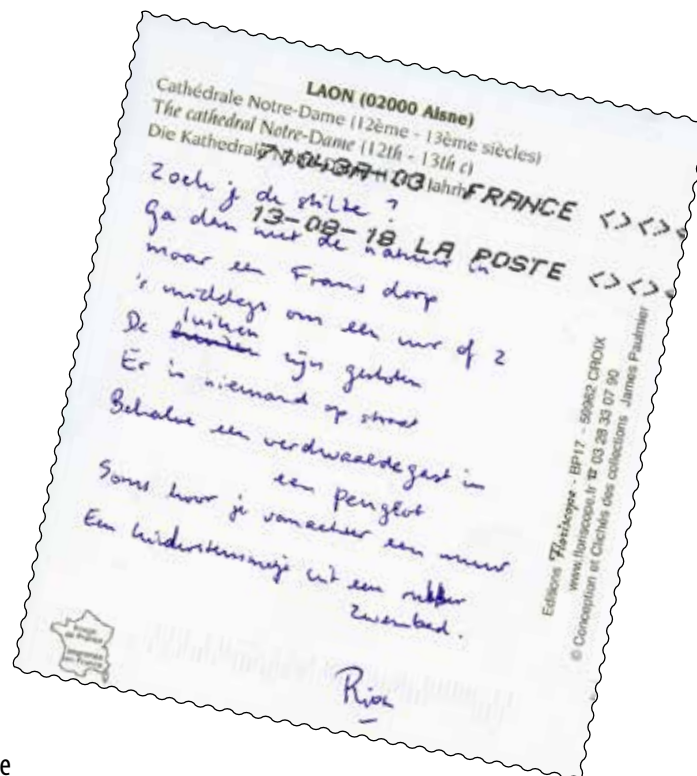 LAON (02000 Aisne)
Cathédrale Notre-Dame (12ème - 13ème siècles)
The cathedral Notre-Dame (12th - 13th c)
Die Kathedrale
FRANCE <><>
13-08-18 LA POSTE <><>
Zoek je de stilte ?
Ga dan niet de natuur in
maar een Frans dorp
's middags om een uur of 2
De luiken zijn gesloten
Er is niemand op straat
Behalve een verdwaalde gast in
een peugeot
Soms hoor je vanachter een muur
Een kinderstemmetje uit een rubber
zwembad.
Rian
Editions Floriscope - BP17 - 59962 CROIX
www.floriscope.fr ☎ 03 28 33 07 90
© Conception et Clichés des collections James Paulmier
e